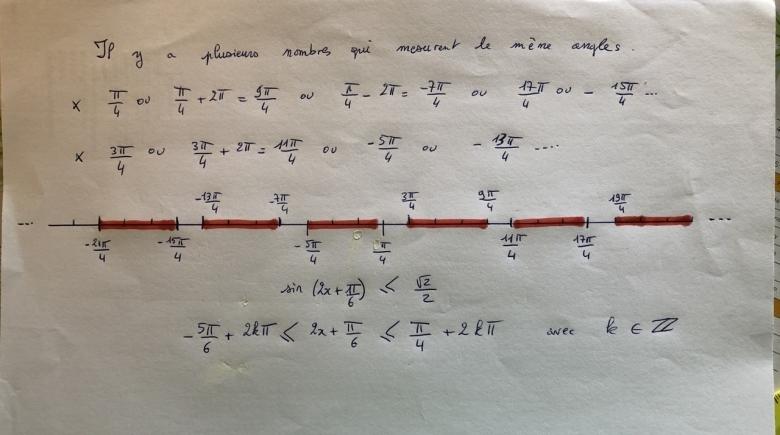 Il y a plusieurs nombres qui mesurent le même angles.
x π/4 ou π/4 + 2π = 9π/4 ou π/4 - 2π = -7π/4 ou 17π/4 ou - 15π/4 ...
x 3π/4 ou 3π/4 + 2π = 11π/4 ou -5π/4 ou - 13π/4 ....
-13π/4 -7π/4 3π/4 9π/4 19π/4
... ...
-21π/4 -15π/4 -5π/4 π/4 11π/4 17π/4
sin (2x + π/6) ≤ √2/2
-5π/6 + 2kπ ≤ 2x + π/6 ≤ π/4 + 2kπ avec k ∈ ℤ